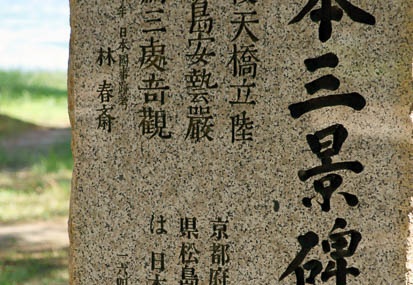 本三景碑
後天橋立陸
島安藝嚴
三處奇觀
年 日本国事跡考
林 春斎
京都府
県松島
は 日本